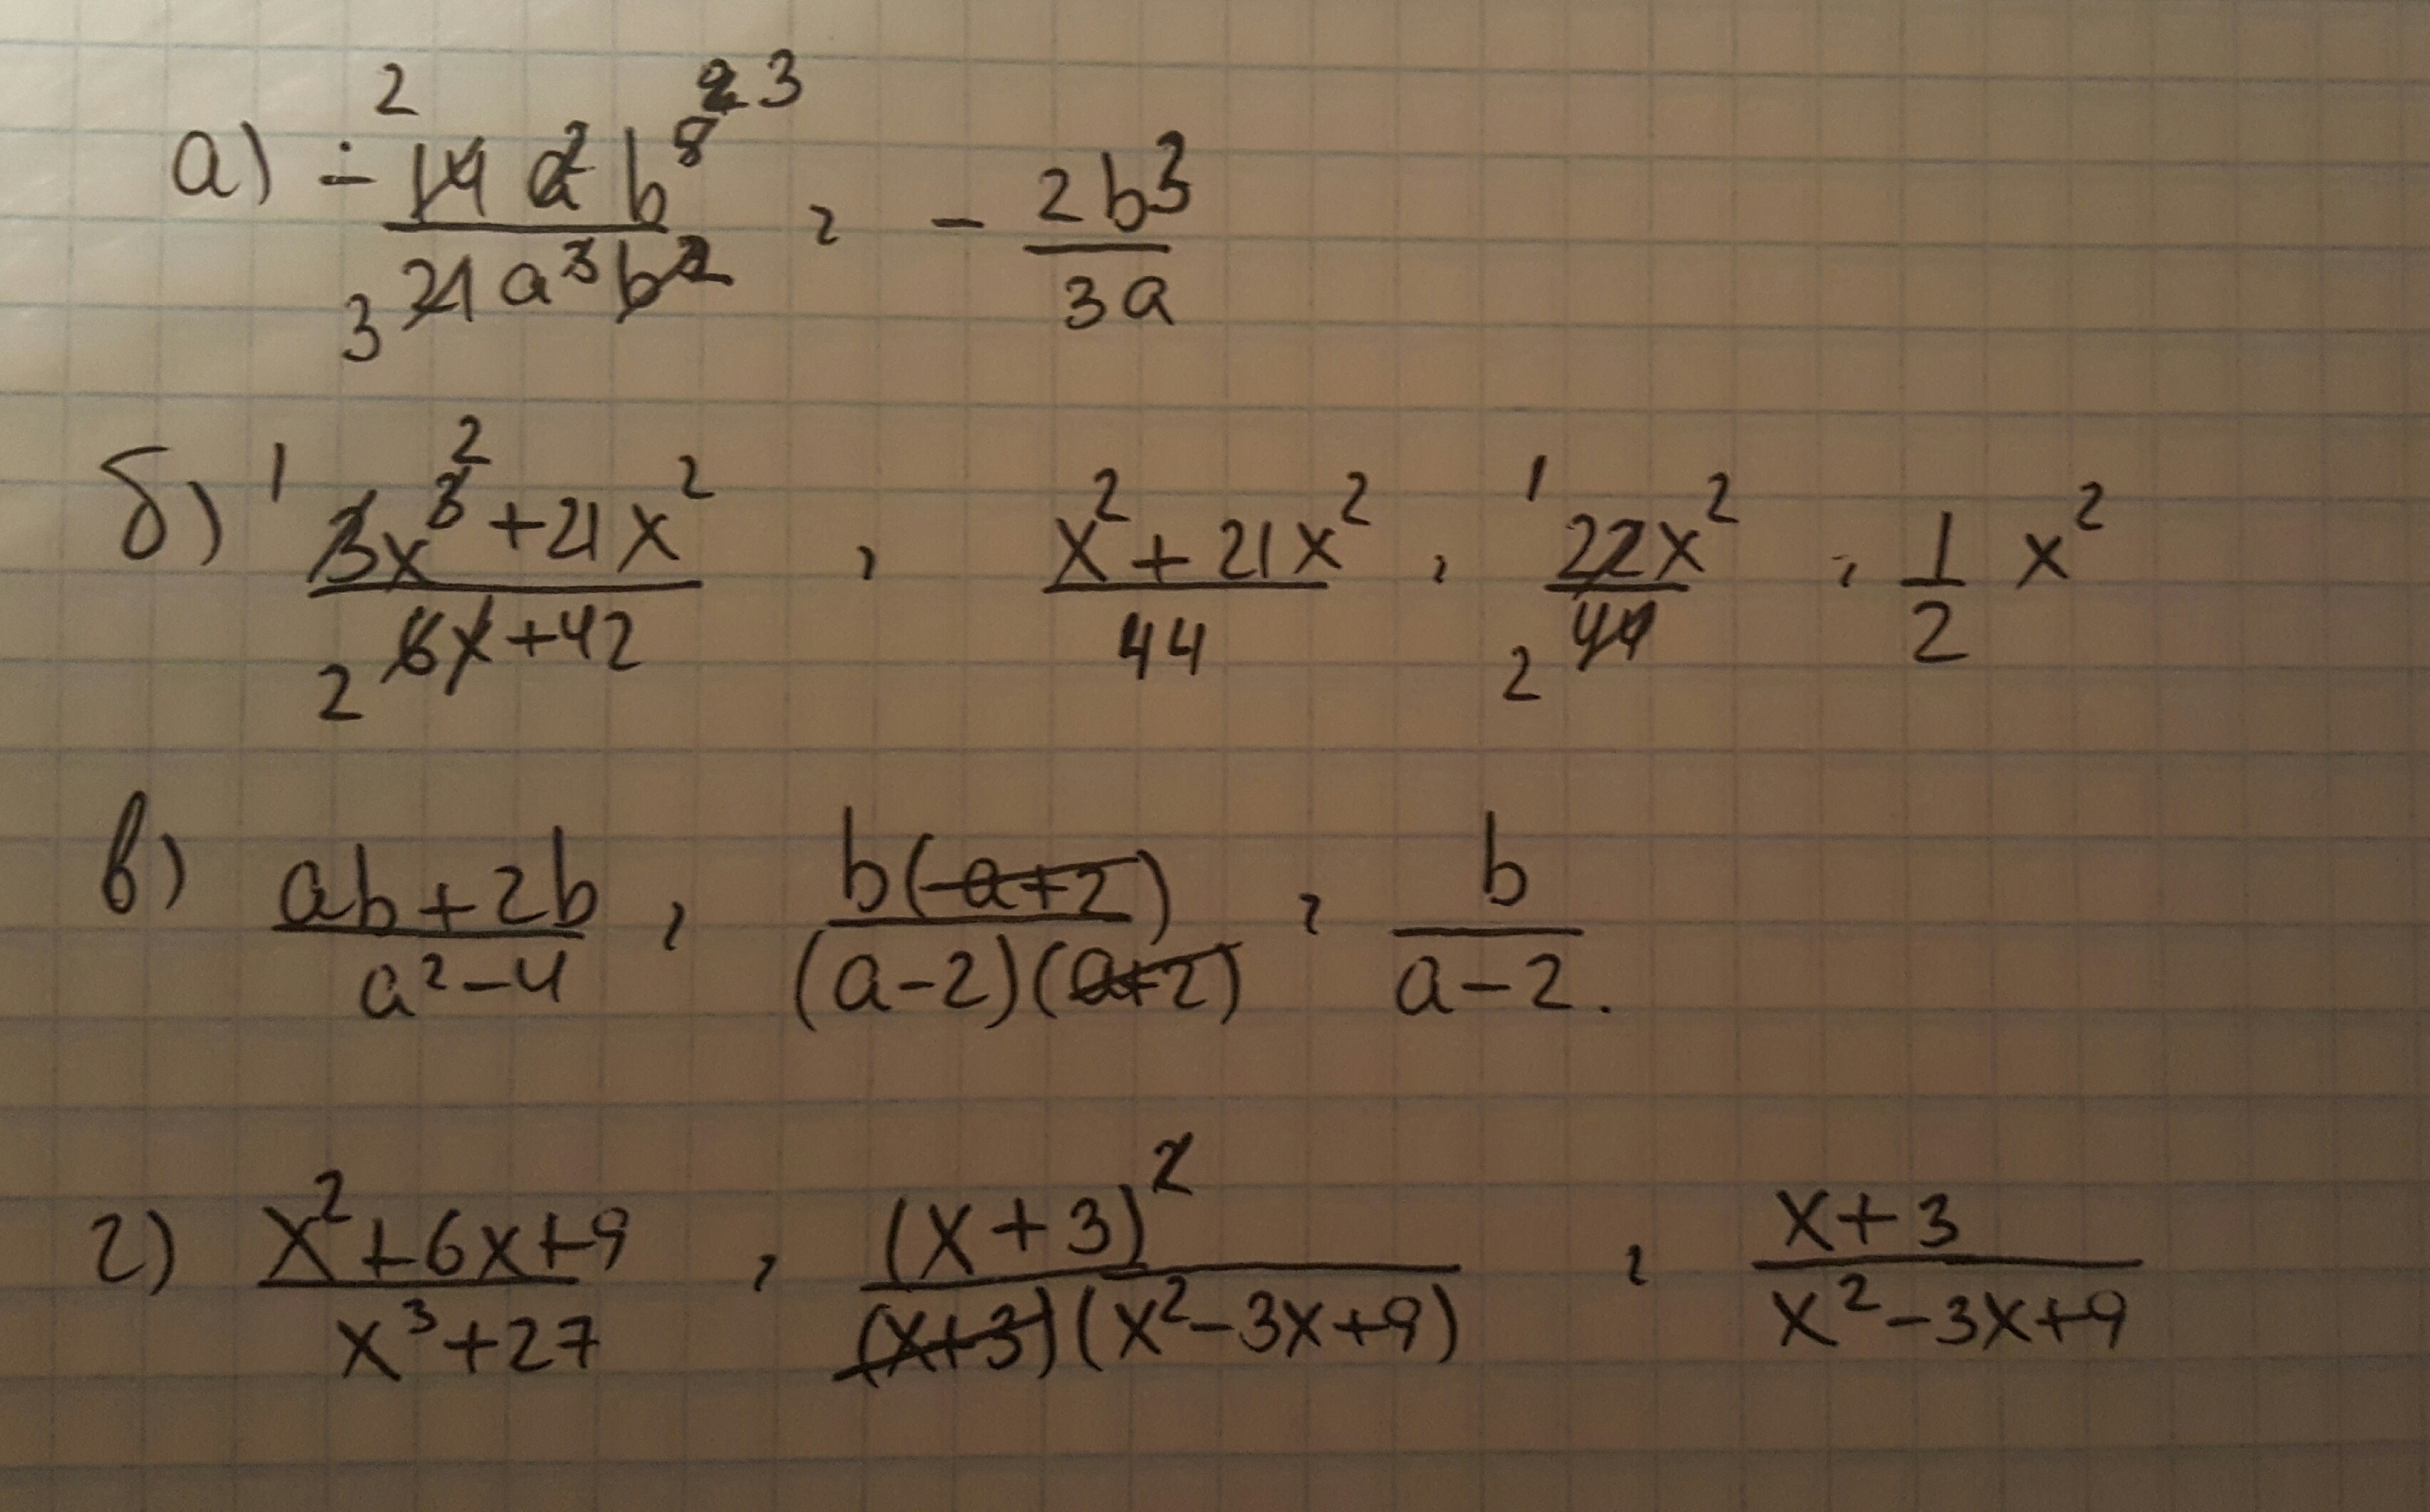 а) - 14a²b⁵/21a³b² = - 2b³/3a
б) 3x³+21x²/6x+42 = x²+21x²/44 = 22x²/44 = 1/2 x²
в) ab+2b/a²-4 = b(a+2)/(a-2)(a+2) = b/a-2.
г) x²+6x+9/x³+27 = (x+3)²/(x+3)(x²-3x+9) = x+3/x²-3x+9